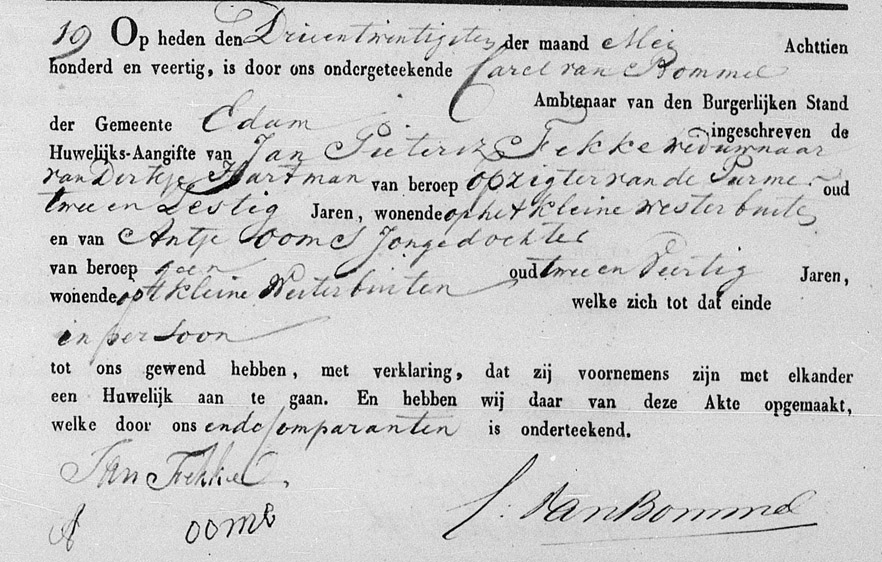 19 Op heden den Drieentwentigsten der maand Mei Achttien
honderd en veertig, is door ons ondergeteekende Carel van Bommel
Ambtenaar van den Burgerlijken Stand
der Gemeente Edam ingeschreven de
Huwelijks-Aangifte van Jan Pieterz Fekke weduwnaar
van Dirkje Hartman van beroep opzigter van de Purmer oud
twee en Zestig Jaren, wonende op het kleine westerbuiten
en van Antje Ooms Jongedochter
van beroep geen oud twee en Veertig Jaren,
wonende op 't kleine Westerbuiten welke zich tot dat einde
in persoon
tot ons gewend hebben, met verklaring, dat zij voornemens zijn met elkander
een Huwelijk aan te gaan. En hebben wij daar van deze Akte opgemaakt,
welke door ons en de Comparanten is onderteekend.
Jan Fekke
A ooms C. van Bommel